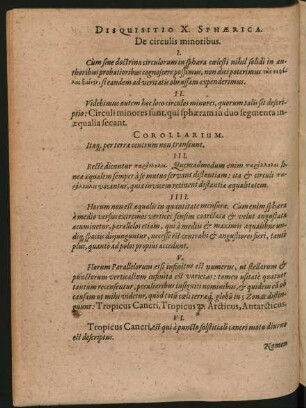 DISQUISITIO X. SPHÆRICA.
De circulis minoribus.
I.
Cum sine doctrina circulorum in sphæra cælesti nihil solidi in au-
thoribus probatioribus cognoscere possimus, non diu poterimus
est tandem ad veritatis obrussam expenderimus.
II.
Videbimus autem hoc loco circulos minores, quorum talis sit descri-
ptio: Circuli minores sunt, qui sphæram in duo segmenta in-
æqualia secant.
COROLLARIUM.
Itaq, per terræ centrum non transeunt.
III.
Recte dicuntur παράλληλοι. Quemadmodum enim παράλληλοι
lineæ æqualem semper à se mutuo servant distantiam: ita & circuli
vocantur, quia invicem retinent distantia æqualitatem.
IIII.
Horum non est æqualis in quantitate mensura. Cum enim sphæra
à medio versus extremos vertices sensim coarctata & velut angustata
acuminetur, parallelos etiam, quò à mediis & maximis æqualibus un-
diq, spatiis disjunguntur, necesse est contrahi & angustiores fieri, tantò
plus, quantò ad polos propius accedunt.
V.
Horum Parallelorum etsi infinitus est numerus, ut stellarum &
punctorum verticalium infinita est varietas: tamen usitatè quatuor
tantùm recensentur, peculiaribus insigniti nominibus, & quidem eâ ob
causam ut mihi videtur, quòd totũ cæli terræq, globũ in 5 Zonas distin-
guant: Tropicus Cancri, Tropicus ♑ Arcticus, Antarcticus.
VI.
Tropicus Cancri, est qui à puncto solstitiali cancri motu diurno
est descriptus.
Nomen